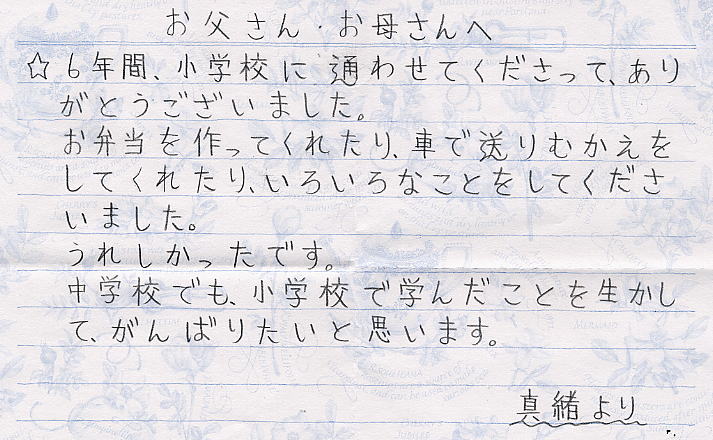 お父さん・お母さんへ
☆6年間、小学校に通わせてくださって、あり
がとうございました。
お弁当を作ってくれたり、車で送りむかえを
してくれたり、いろいろなことをしてくださ
いました。
うれしかったです。
中学校でも、小学校で学んだことを生かし
て、がんばりたいと思います。
真緒より